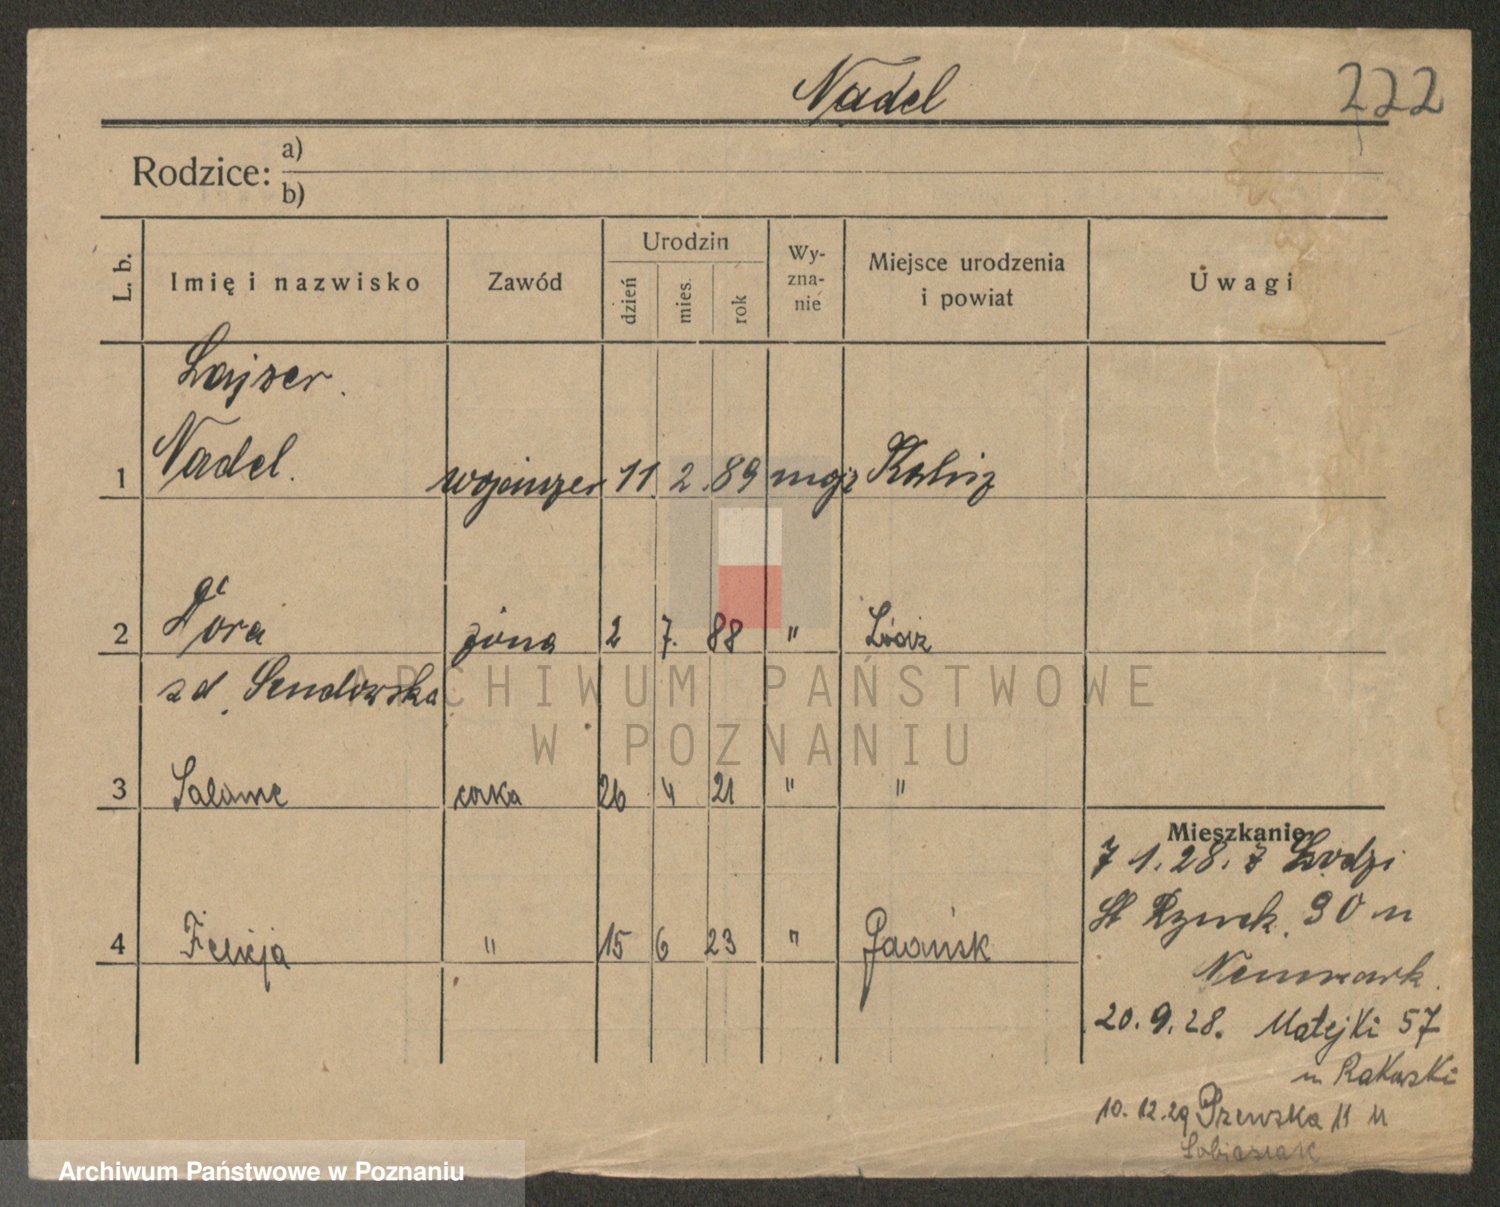 Nadel
222
Rodzice: a)
b)
L. b. Imię i nazwisko Zawód Urodzin dzień mies. rok Wy-zna-nie Miejsce urodzenia i powiat Uwagi
Lajzer.
1 Nadel. 11. 2. 89 mojż Kalisz
2 Dora żona 2 7. 88 " Łódź
zd. Sendowska
3 Salome córka 26 4 21 " "
Mieszkanie
7 1. 28. z Łodzi
St Rynek. 90 u
Neumark.
4 Felicja " 15 6 23 " Gdańsk
20. 9. 28. Matejki 57
u Rakowski
10. 12. 29 11 u
ARCHIWUM PAŃSTWOWE
W POZNANIU
Archiwum Państwowe w Poznaniu